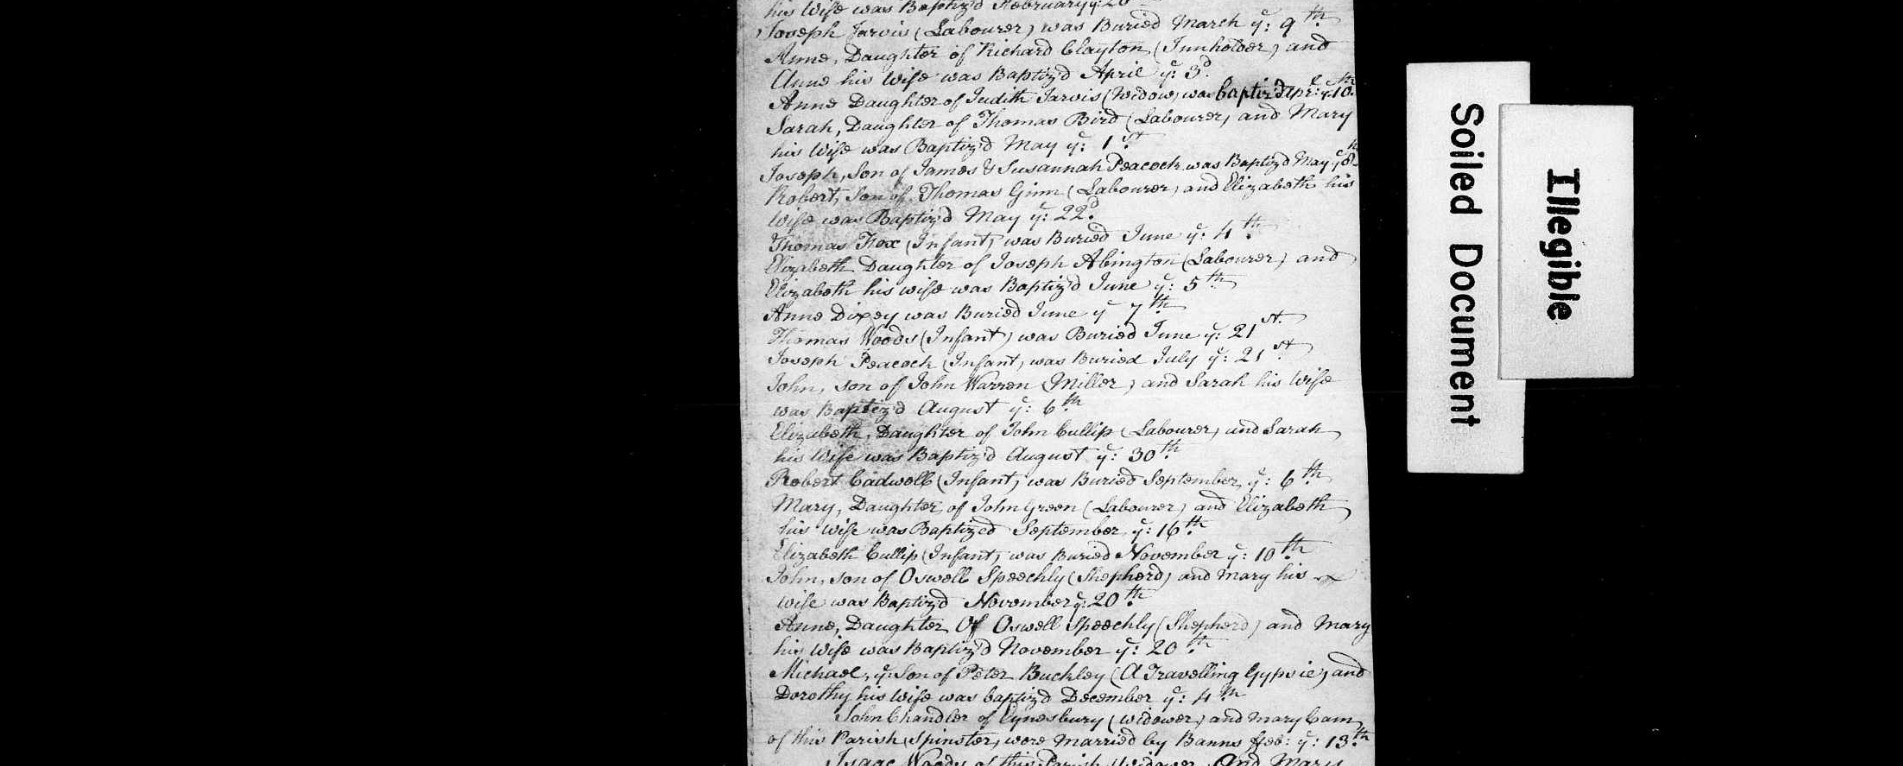 his Wife was Baptiz'd February y: 20
Joseph Jarvis (Labourer) was Buried March y: 9th
Anne, Daughter of Richard Clayton (Innholder) and
Anne his Wife was Baptiz'd April y: 3d
Anne Daughter of Judith Jarvis (Widow) was baptiz'd Apr: y: 10th
Sarah, Daughter of Thomas Bird (Labourer) and Mary
his Wife was Baptiz'd May y: 1st
Joseph, Son of James & Susannah Peacock was Baptiz'd May y: 8th
Robert, Son of Thomas Ginn (Labourer) and Elizabeth his
Wife was Baptiz'd May y: 22d
Thomas Fox (Infant) was Buried June y: 4th
Elizabeth Daughter of Joseph Abington (Labourer) and
Elizabeth his wife was Baptiz'd June y: 5th
Anne Dixey was Buried June y 7th
Thomas Woods (Infant) was Buried June y: 21st
Joseph Peacock (Infant) was Buried July y: 21st
John, son of John Warren (Miller) and Sarah his Wife
was Baptiz'd August y: 6th
Elizabeth, Daughter of John Cullip (Labourer) and Sarah
his Wife was Baptiz'd August y: 30th
Robert Cadwell (Infant) was Buried September y: 6th
Mary, Daughter of John Green (Labourer) and Elizabeth
his wife was Baptized September y: 16th
Elizabeth Cullip (Infant) was Buried November y: 10th
John, son of Oswell Speechly (Shepherd) and Mary his
wife was Baptiz'd November y: 20th
Anne, Daughter Of Oswell Speechly (Shepherd) and Mary
his Wife was Baptiz'd November y: 20th
Michael, y: Son of Peter Buckley (A Travelling Gypsie) and
Dorothy his wife was baptiz'd December y: 4th
John Chandler of Eynesbury (widower) and Mary Cam
of this Parish (Spinster) were Married by Banns Feb: y: 13th
Isaac Woods of this Parish Widower And Mary
Soiled Document
Illegible